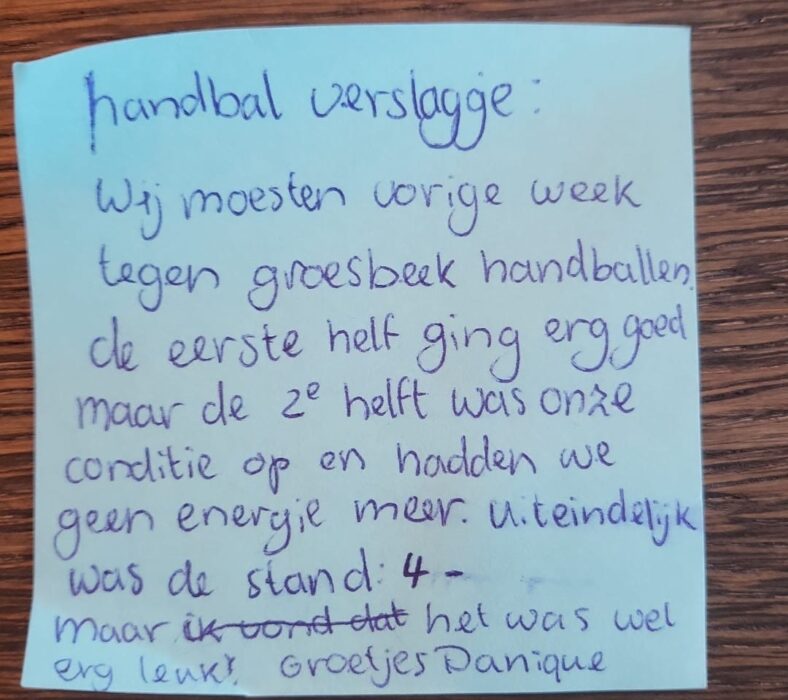 handbal verslagge:
Wij moesten vorige week
tegen groesbeek handballen.
de eerste helf ging erg goed
maar de 2e helft was onze
conditie op en hadden we
geen energie meer. Uiteindelijk
was de stand: 4 -
maar ik vond dat het was wel
erg leuk! Groetjes Danique